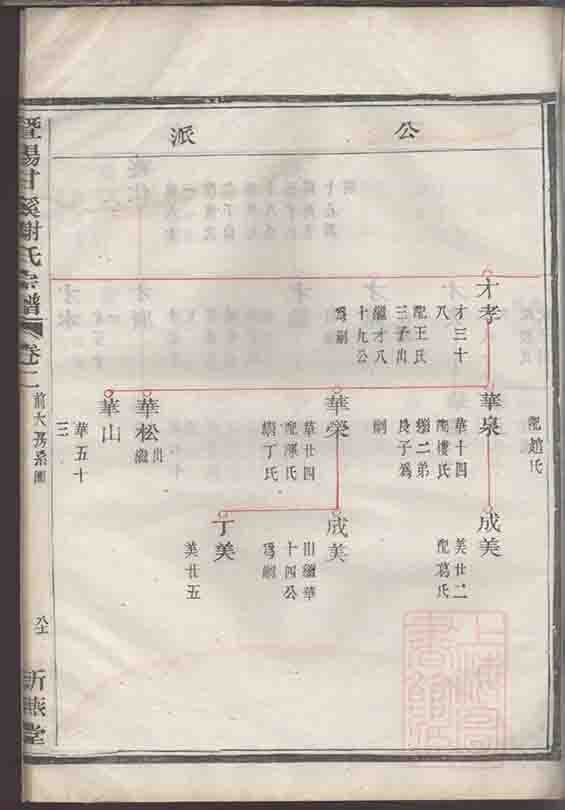 公派
才孝
才三十
八
配王氏
三子出
繼才八
十九公
爲嗣
配趙氏
華泉
華十四
配樓氏
繼二弟
長子爲
嗣
華榮
華廿四
配陳氏
繼丁氏
華松
出繼
華山
華五十
三
成美
美廿二
配葛氏
成美
出繼華
十四公
爲嗣
丁美
美廿五
暨陽甘溪謝氏宗譜
卷二
前大房系圖
新燕堂
上海圖書館藏